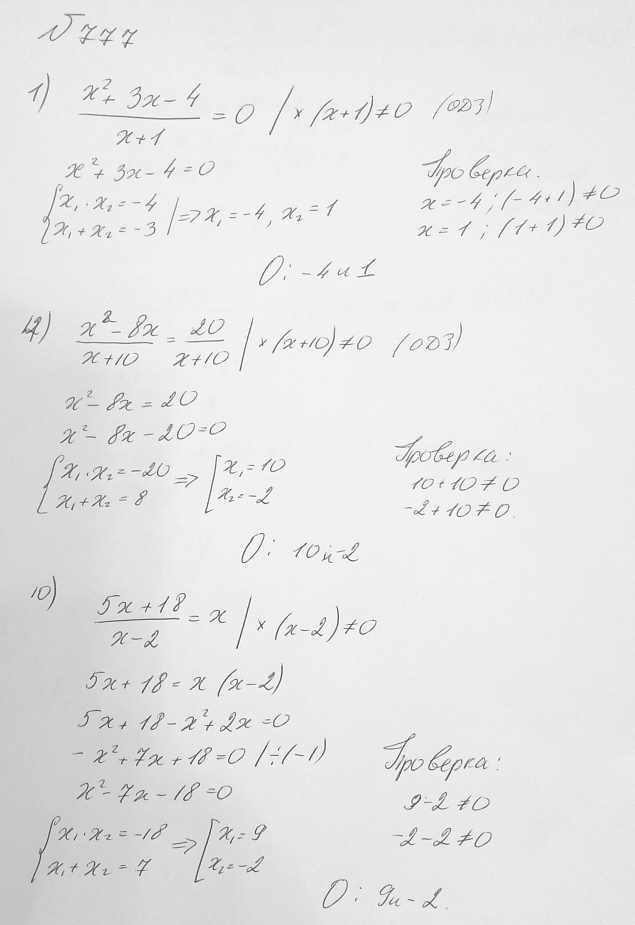 №777
1) (x²+3x-4)/(x+1) = 0 | × (x+1) ≠ 0 (ОДЗ)
x²+3x-4=0
{x₁·x₂=-4
{x₁+x₂=-3 | => x₁=-4, x₂=1
Проверка.
x=-4; (-4+1) ≠ 0
x=1; (1+1) ≠ 0
О: -4 и 1
2) (x²-8x)/(x+10) = 20/(x+10) | × (x+10) ≠ 0 (ОДЗ)
x²-8x=20
x²-8x-20=0
{x₁·x₂=-20
{x₁+x₂=8 => [x₁=10
[x₂=-2
Проверка:
10+10≠0
-2+10≠0.
О: 10 и -2
10) (5x+18)/(x-2) = x | × (x-2) ≠ 0
5x+18=x(x-2)
5x+18-x²+2x=0
-x²+7x+18=0 |÷(-1)
x²-7x-18=0
{x₁·x₂=-18
{x₁+x₂=7 => [x₁=9
[x₂=-2
Проверка:
9-2≠0
-2-2≠0
О: 9 и -2.